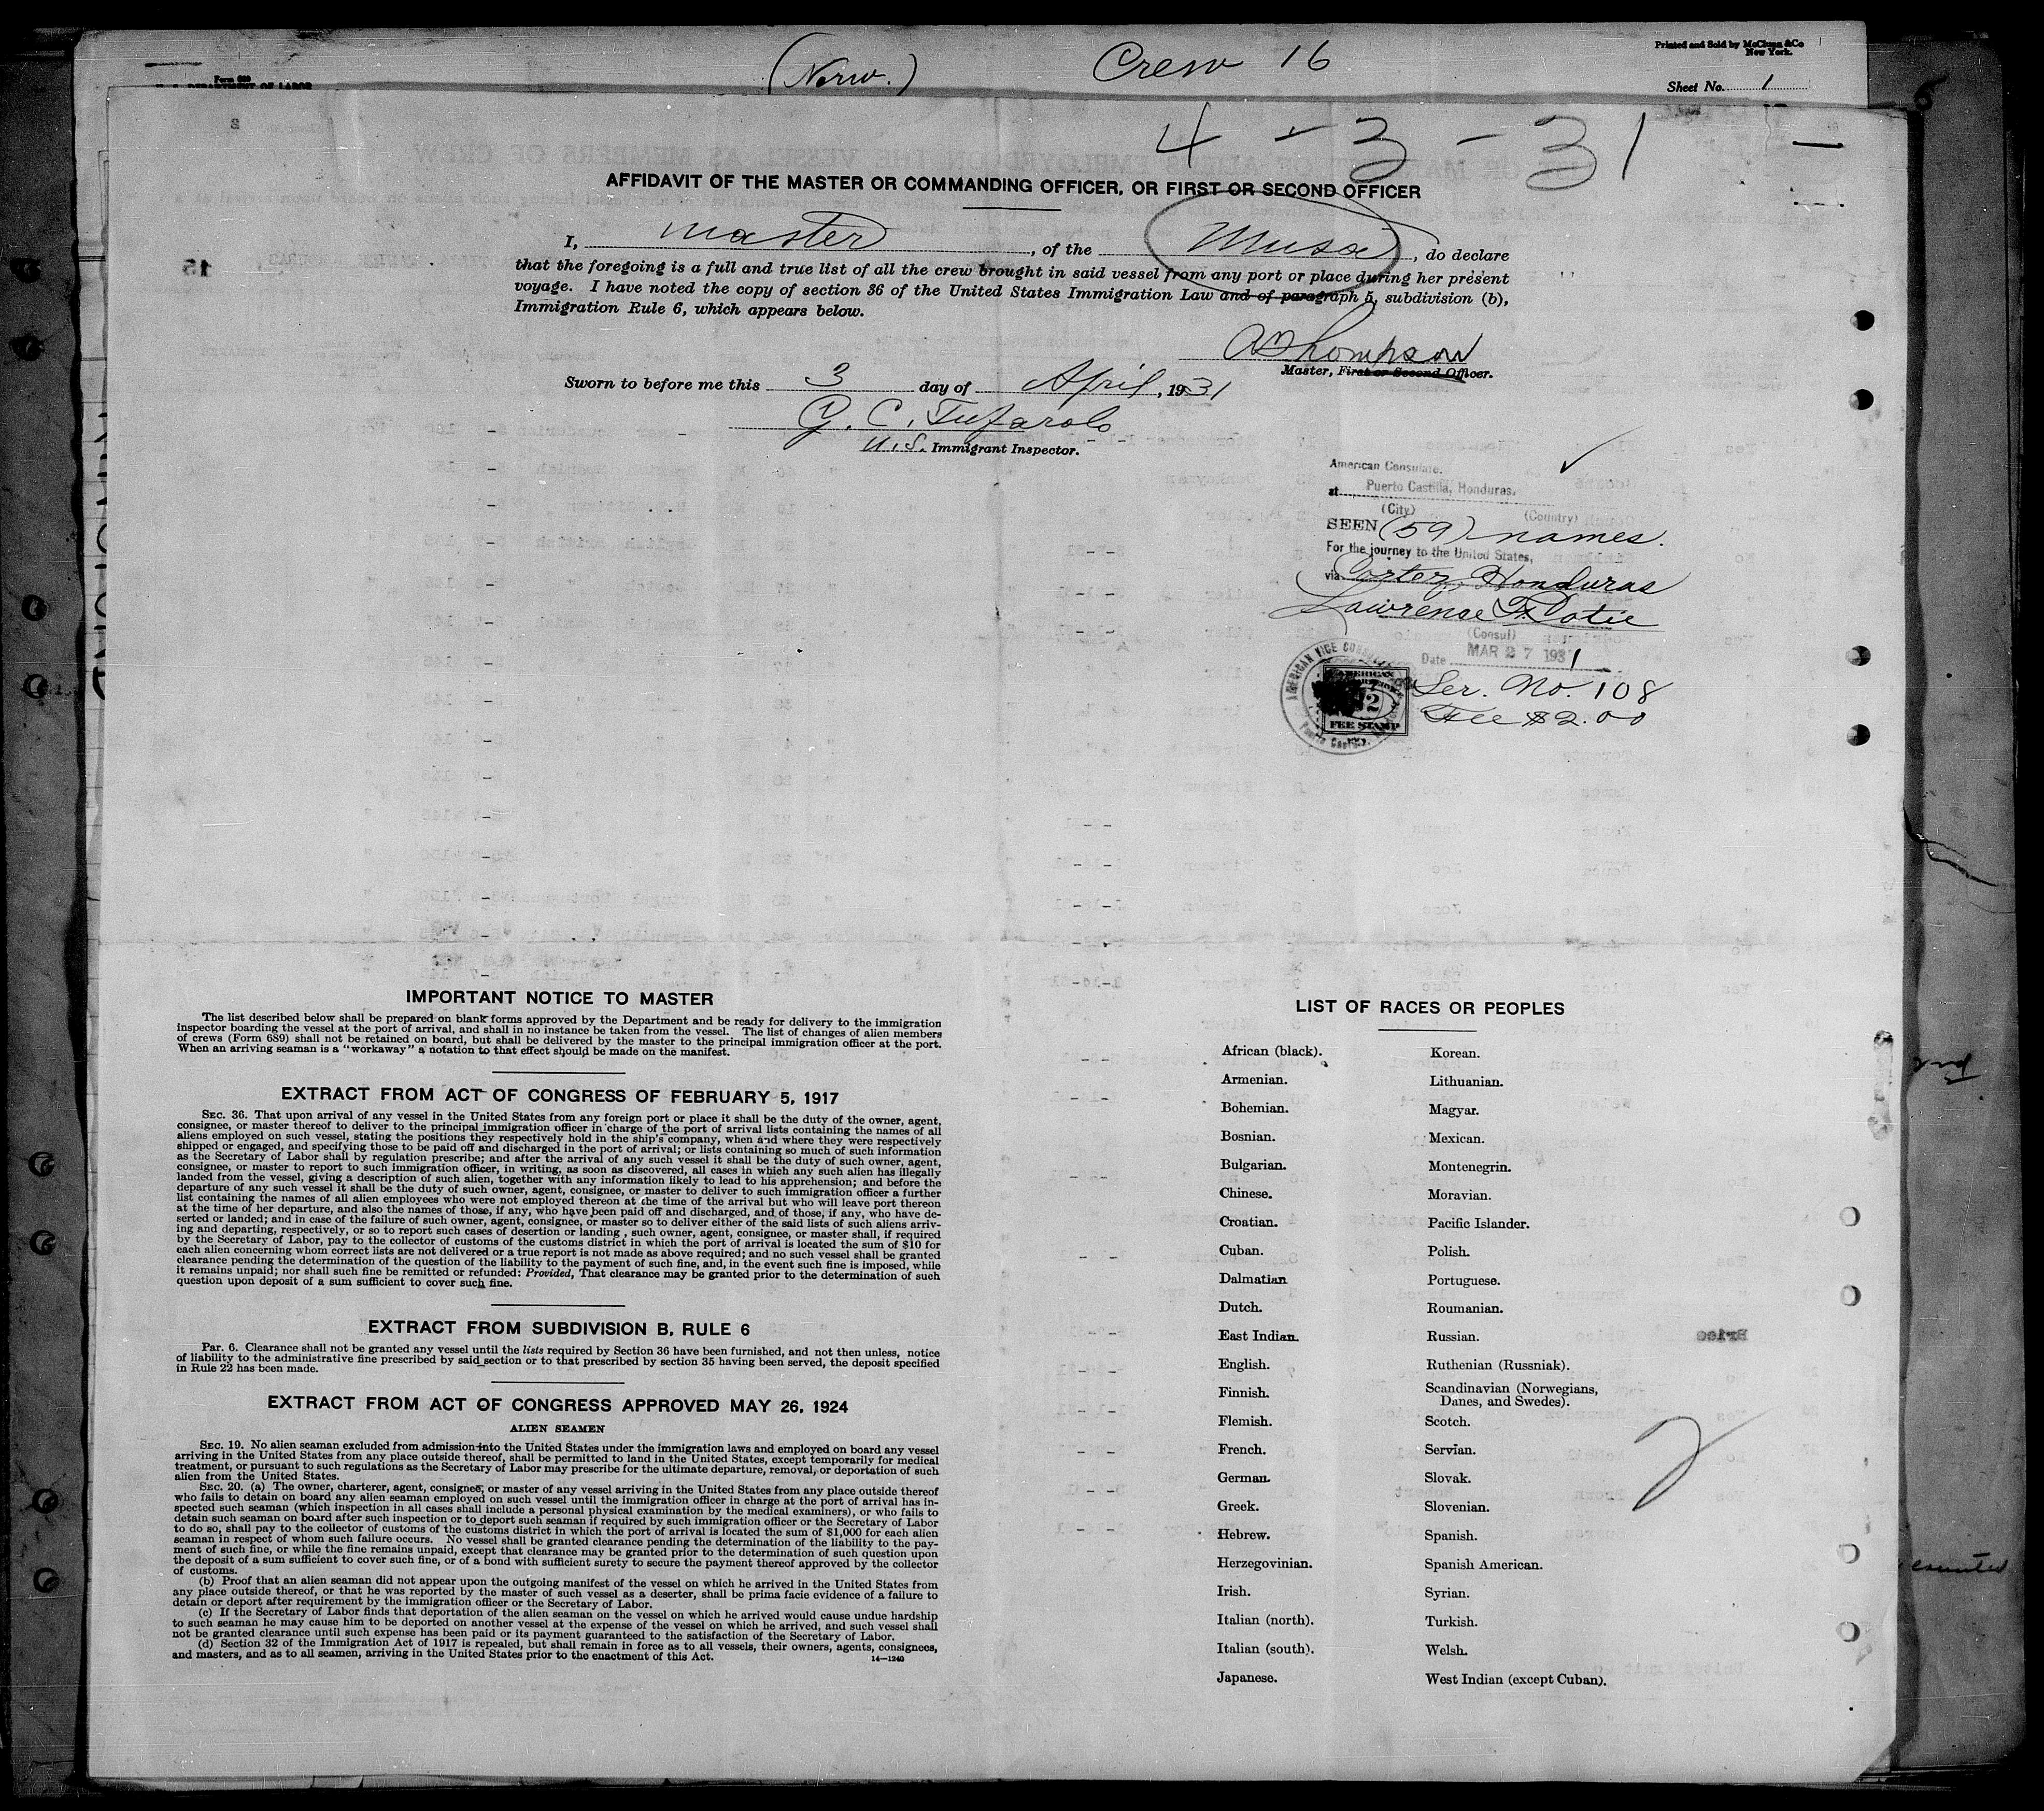 Printed and Sold by McClunn & Co
New York.
Form 689
(Norw.) Crew 16
Sheet No. 1
4 - 3 - 31
AFFIDAVIT OF THE MASTER OR COMMANDING OFFICER, OR FIRST OR SECOND OFFICER
I, master, of the Musa, do declare
that the foregoing is a full and true list of all the crew brought in said vessel from any port or place during her present
voyage. I have noted the copy of section 36 of the United States Immigration Law and of paragraph 5, subdivision (b),
Immigration Rule 6, which appears below.
A Thompson
Master, First or Second Officer.
Sworn to before me this 3 day of April, 1931
G. C. Tufarolo
U.S. Immigrant Inspector.
American Consulate.
at Puerto Castilla, Honduras.
(City) (Country)
SEEN (59) names.
For the journey to the United States,
via Cortez, Honduras
Lawrence F. Cotie
(Consul)
Date MAR 27 1931
Ser. No. 108
Fee $2.00
AMERICAN
FEE STAMP
IMPORTANT NOTICE TO MASTER
The list described below shall be prepared on blank forms approved by the Department and be ready for delivery to the immigration
inspector boarding the vessel at the port of arrival, and shall in no instance be taken from the vessel. The list of changes of alien members
of crews (Form 689) shall not be retained on board, but shall be delivered by the master to the principal immigration officer at the port.
When an arriving seaman is a "workaway" a notation to that effect should be made on the manifest.
EXTRACT FROM ACT OF CONGRESS OF FEBRUARY 5, 1917
SEC. 36. That upon arrival of any vessel in the United States from any foreign port or place it shall be the duty of the owner, agent,
consignee, or master thereof to deliver to the principal immigration officer in charge of the port of arrival lists containing the names of all
aliens employed on such vessel, stating the positions they respectively hold in the ship's company, when and where they were respectively
shipped or engaged, and specifying those to be paid off and discharged in the port of arrival; or lists containing so much of such information
as the Secretary of Labor shall by regulation prescribe; and after the arrival of any such vessel it shall be the duty of such owner, agent,
consignee, or master to report to such immigration officer, in writing, as soon as discovered, all cases in which any such alien has illegally
landed from the vessel, giving a description of such alien, together with any information likely to lead to his apprehension; and before the
departure of any such vessel it shall be the duty of such owner, agent, consignee, or master to deliver to such immigration officer a further
list containing the names of all alien employees who were not employed thereon at the time of the arrival but who will leave port thereon
at the time of her departure, and also the names of those, if any, who have been paid off and discharged, and of those, if any, who have de-
serted or landed; and in case of the failure of such owner, agent, consignee, or master so to deliver either of the said lists of such aliens arriv-
ing and departing, respectively, or so to report such cases of desertion or landing, such owner, agent, consignee, or master shall, if required
by the Secretary of Labor, pay to the collector of customs of the customs district in which the port of arrival is located the sum of $10 for
each alien concerning whom correct lists are not delivered or a true report is not made as above required; and no such vessel shall be granted
clearance pending the determination of the question of the liability to the payment of such fine, and, in the event such fine is imposed, while
it remains unpaid; nor shall such fine be remitted or refunded: Provided, That clearance may be granted prior to the determination of such
question upon deposit of a sum sufficient to cover such fine.
EXTRACT FROM SUBDIVISION B, RULE 6
Par. 6. Clearance shall not be granted any vessel until the lists required by Section 36 have been furnished, and not then unless, notice
of liability to the administrative fine prescribed by said section or to that prescribed by section 35 having been served, the deposit specified
in Rule 22 has been made.
EXTRACT FROM ACT OF CONGRESS APPROVED MAY 26, 1924
ALIEN SEAMEN
SEC. 19. No alien seaman excluded from admission into the United States under the immigration laws and employed on board any vessel
arriving in the United States from any place outside thereof, shall be permitted to land in the United States, except temporarily for medical
treatment, or pursuant to such regulations as the Secretary of Labor may prescribe for the ultimate departure, removal, or deportation of such
alien from the United States.
SEC. 20. (a) The owner, charterer, agent, consignee, or master of any vessel arriving in the United States from any place outside thereof
who fails to detain on board any alien seaman employed on such vessel until the immigration officer in charge at the port of arrival has in-
spected such seaman (which inspection in all cases shall include a personal physical examination by the medical examiners), or who fails to
detain such seaman on board after such inspection or to deport such seaman if required by such immigration officer or the Secretary of Labor
to do so, shall pay to the collector of customs of the customs district in which the port of arrival is located the sum of $1,000 for each alien
seaman in respect of whom such failure occurs. No vessel shall be granted clearance pending the determination of the liability to the pay-
ment of such fine, or while the fine remains unpaid, except that clearance may be granted prior to the determination of such question upon
the deposit of a sum sufficient to cover such fine, or of a bond with sufficient surety to secure the payment thereof approved by the collector
of customs.
(b) Proof that an alien seaman did not appear upon the outgoing manifest of the vessel on which he arrived in the United States from
any place outside thereof, or that he was reported by the master of such vessel as a deserter, shall be prima facie evidence of a failure to
detain or deport after requirement by the immigration officer or the Secretary of Labor.
(c) If the Secretary of Labor finds that deportation of the alien seaman on the vessel on which he arrived would cause undue hardship
to such seaman he may cause him to be deported on another vessel at the expense of the vessel on which he arrived, and such vessel shall
not be granted clearance until such expense has been paid or its payment guaranteed to the satisfaction of the Secretary of Labor.
(d) Section 32 of the Immigration Act of 1917 is repealed, but shall remain in force as to all vessels, their owners, agents, consignees,
and masters, and as to all seamen, arriving in the United States prior to the enactment of this Act.
14—1240
LIST OF RACES OR PEOPLES
African (black). Korean.
Armenian. Lithuanian.
Bohemian. Magyar.
Bosnian. Mexican.
Bulgarian. Montenegrin.
Chinese. Moravian.
Croatian. Pacific Islander.
Cuban. Polish.
Dalmatian Portuguese.
Dutch. Roumanian.
East Indian. Russian.
English. Ruthenian (Russniak).
Finnish. Scandinavian (Norwegians,
Danes, and Swedes).
Flemish. Scotch.
French. Servian.
German. Slovak.
Greek. Slovenian.
Hebrew. Spanish.
Herzegovinian. Spanish American.
Irish. Syrian.
Italian (north). Turkish.
Italian (south). Welsh.
Japanese. West Indian (except Cuban).
2